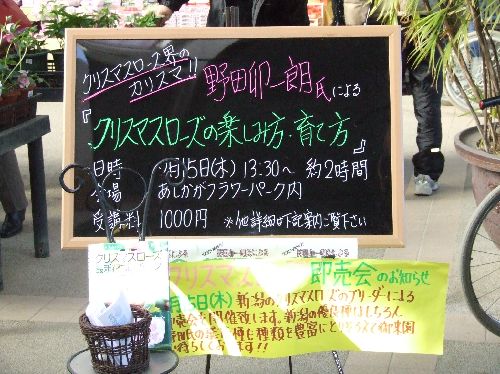 クリスマスローズ界の
カリスマ!!
野田卯一朗氏による
『クリスマスローズの楽しみ方・育て方』
日時 月15日(木) 13:30~ 約2時間
会場 あしかがフラワーパーク内
受講料 1000円 ※他詳細は下記案内ご覧下さい
クリスマスローズ
クリスマス 即売会のお知らせ
月15日(木) 新潟のクリスマスローズのブリーダーによる
即売会を開催致します。新潟の優良種はもちろん、
野田氏の 種も種類を豊富にとりそろえて御来園
お待ちしております!!